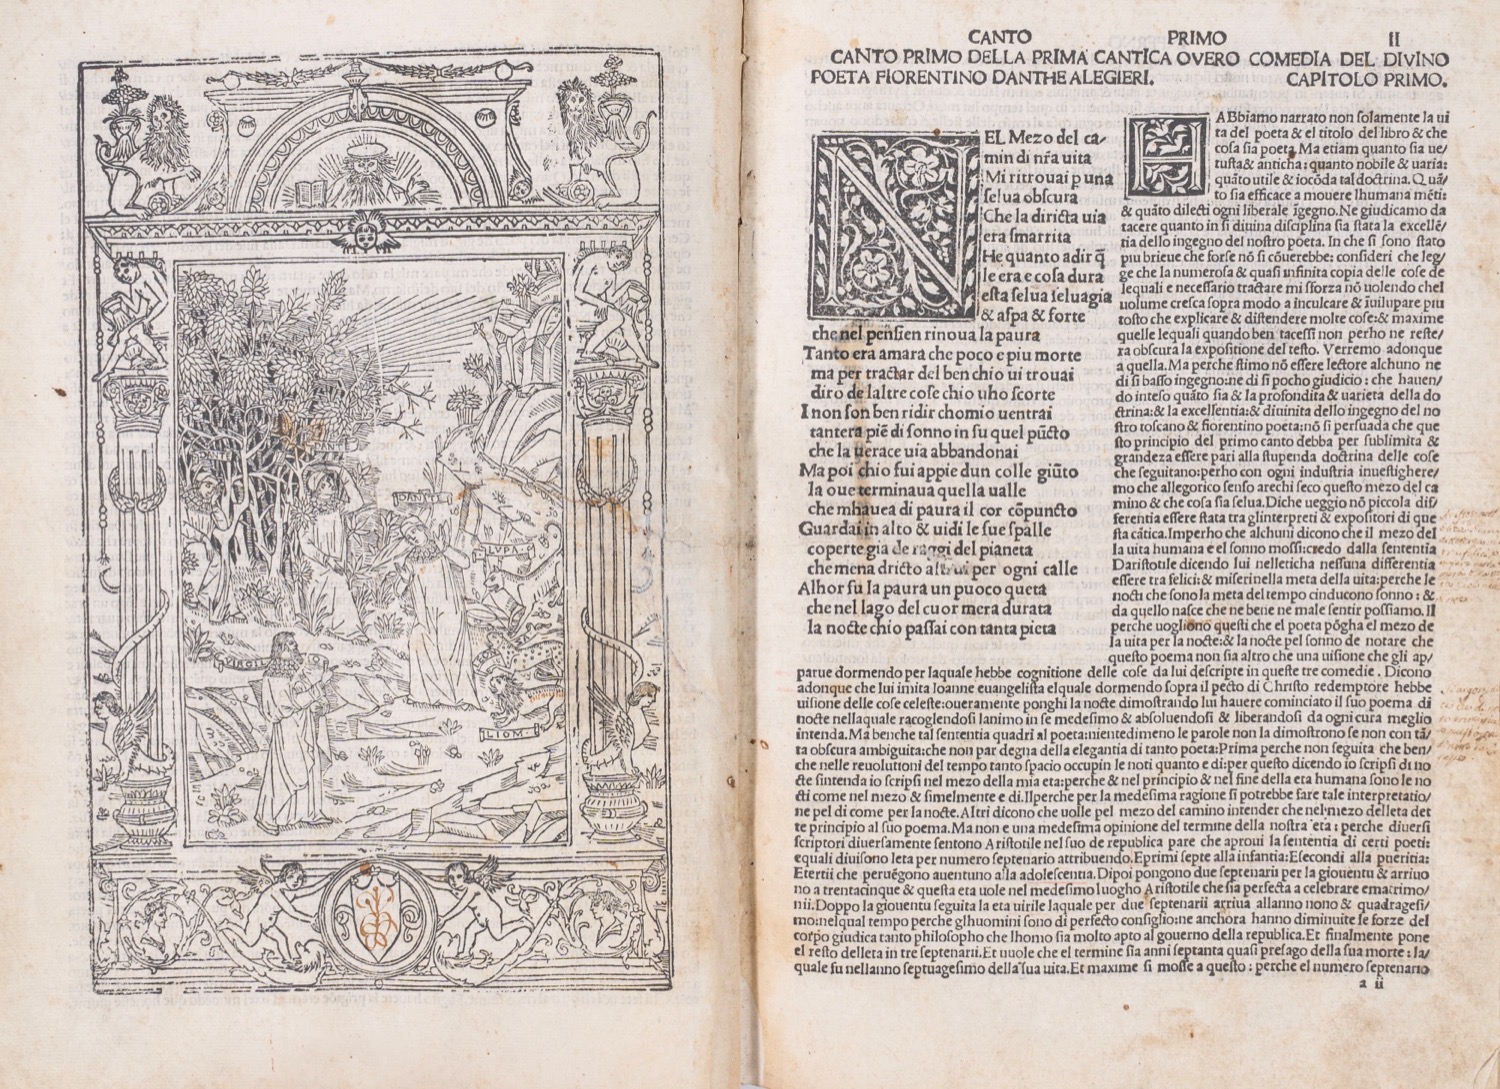 DANTE
DANTE
LUPA
VIRGIL
LEO
LIOM.
CANTO PRIMO II
CANTO PRIMO DELLA PRIMA CANTICA OVERO COMEDIA DEL DIVINO
POETA FIORENTINO DANTHE ALEGIERI. CAPITOLO PRIMO.
NEL Mezo del ca/
min di nr̃a uita
Mi ritrouai p una
selua obscura
Che la diricta uia
era smarrita
He quanto adir q̃
le era e cosa dura
esta selua seluagia
& aspa & forte
che nel pensier rinoua la paura
Tanto era amara che poco e piu morte
ma per tractar del ben chio ui trouai
diro de laltre cose chio uho scorte
I non son ben ridir chomio uentrai
tantera piē di sonno in su quel pūcto
che la uerace uia abbandonai
Ma poi chio fui appie dun colle giūto
la oue terminaua quella ualle
che mhauea di paura il cor cōpuncto
Guardai in alto & uidi le sue spalle
coperte gia de raggi del pianeta
che mena dricto altrui per ogni calle
Alhor fu la paura un puoco queta
che nel lago del cuor mera durata
la nocte chio passai con tanta pieta
HABbiamo narrato non solamente la ui
ta del poeta & el titolo del libro & che
cosa sia poeta. Ma etiam quanto sia ue/
tusta & anticha: quanto nobile & uaria:
quāto utile & iocōda tal doctrina. Quā/
to sia efficace a mouere lhumana mēti:
& quāto dilecti ogni liberale īgegno. Ne giudicamo da
tacere quanto in si diuina disciplina sia stata la excellē/
tia dello ingegno del nostro poeta. In che si sono stato
piu brieue che forse nō si cōuerebbe: consideri che leg/
ge che la numerosa & quasi infinita copia delle cose de
lequali e necessario tractare mi sforza nō uolendo chel
uolume cresca sopra modo a inculcare & īuilupare piu
tosto che explicare & distendere molte cose: & maxime
quelle lequali quando ben tacessi non perho ne reste/
ra obscura la expositione del testo. Verremo adonque
a quella. Ma perche stimo nō essere lectore alchuno ne
di si basso ingegno: ne di si pocho giudicio: che hauen/
do inteso quāto sia & la profondita & uarieta della do
ctrina: & la excellentia: & diuinita dello ingegno del no
stro toscano & fiorentino poeta: nō si persuada che que
sto principio del primo canto debba per sublimita &
grandeza essere pari alla stupenda doctrina delle cose
che seguitano: perho con ogni industria inuestighere/
mo che allegorico senso arechi seco questo mezo del ca
mino & che cosa sia selua. Diche ueggio nō piccola dif/
ferentia essere stata tra glinterpreti & expositori di que
sta cātica. Imperho che alchuni dicono che il mezo del
la uita humana e el sonno mossi credo dalla sententia
Daristotile dicendo lui nellethica nessuna differentia
essere tra felici: & miseri nella meta della uita: perche le
nocti che sono la meta del tempo cinducono sonno: &
da quello nasce che ne bene ne male sentir possiamo. Il
perche uogliono questi che el poeta pōgha el mezo de
la uita per la nocte: & la nocte pel sonno de notare che
questo poema non sia altro che una uisione che gli ap/
parue dormendo per laquale hebbe cognitione delle cose da lui descripte in queste tre comedie. Dicono
adonque che lui imita Ioanne euangelista elquale dormendo sopra il pecto di Christo redemptore hebbe
uisione delle cose celeste: oueramente ponghi la nocte dimostrando lui hauere cominciato il suo poema di
nocte nellaquale racoglendosi lanimo in se medesimo & absoluendosi & liberandosi da ogni cura meglio
intenda. Ma benche tal sententia quadri al poeta: nientedimeno le parole non la dimostrono se non con tā/
ta obscura ambiguita: che non par degna della elegantia di tanto poeta: Prima perche non seguita che ben/
che nelle reuolutioni del tempo tanto spacio occupin le noti quanto e di: per questo dicendo io scripsi di no
cte sintenda io scripsi nel mezo della mia eta: perche & nel principio & nel fine della eta humana sono le no
cti come nel mezo & simelmente e di. Ilperche per la medesima ragione si potrebbe fare tale interpretatio/
ne pel di come per la nocte. Altri dicono che uolle pel mezo del camino intender che nel mezo delleta det
te principio al suo poema. Ma non e una medesima opinione del termine della nostra eta: perche diuersi
scriptori diuersamente sentono Aristotile nel suo de republica pare che aproui la sententia di certi poeti:
equali diuisono leta per numero septenario attribuendo. E primi septe alla infantia: E secondi alla pueritia:
E tertii che peruēgono auentuno alla adolescentia. Dipoi pongono due septenari per la giouentu & arriuo
no a trentacinque & questa eta uole nel medesimo luogho Aristotile che sia perfecta a celebrare ematrimo/
nii. Doppo la giouentu seguita la eta uirile laquale per due septenarii arriua allanno nono & quadragesi/
mo: nelqual tempo perche glhuomini sono di perfecto consiglio: ne anchora hanno diminuite le forze del
corpo giudica tanto philosopho che lhomo sia molto apto al gouerno della republica. Et finalmente pone
el resto delleta in tre septenarii. Et uuole che el termine sia anni septanta quasi presago della sua morte: la/
quale fu nellanno septuagesimo della sua uita. Et maxime si mosse a questo: perche el numero septenario
a ii